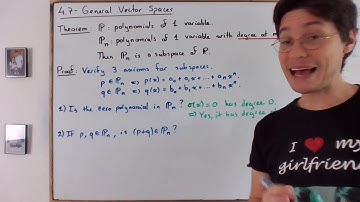 4.7- General Vector Spaces
Theorem: ℙ: polynomials of 1 variable.
ℙn: polynomials of 1 variable with degree at m
Then ℙn is a subspace of ℙ.
Proof: Verify 3 axioms for subspaces.
p ∈ ℙn ⇔ p(x) = a₀ + a₁x + ... + anxⁿ.
q ∈ ℙn ⇔ q(x) = b₀ + b₁x + ... + bnxⁿ.
1) Is the zero polynomial in ℙn? o(x) = 0 has degree 0.
⇒ Yes, it has degree
2) If p, q ∈ ℙn, is (p+q) ∈ ℙn?
I ♥ my
girlfriend